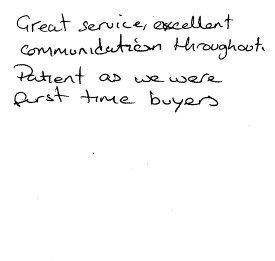 Great service, excellent
communication throughout.
Patient as we were
first time buyers